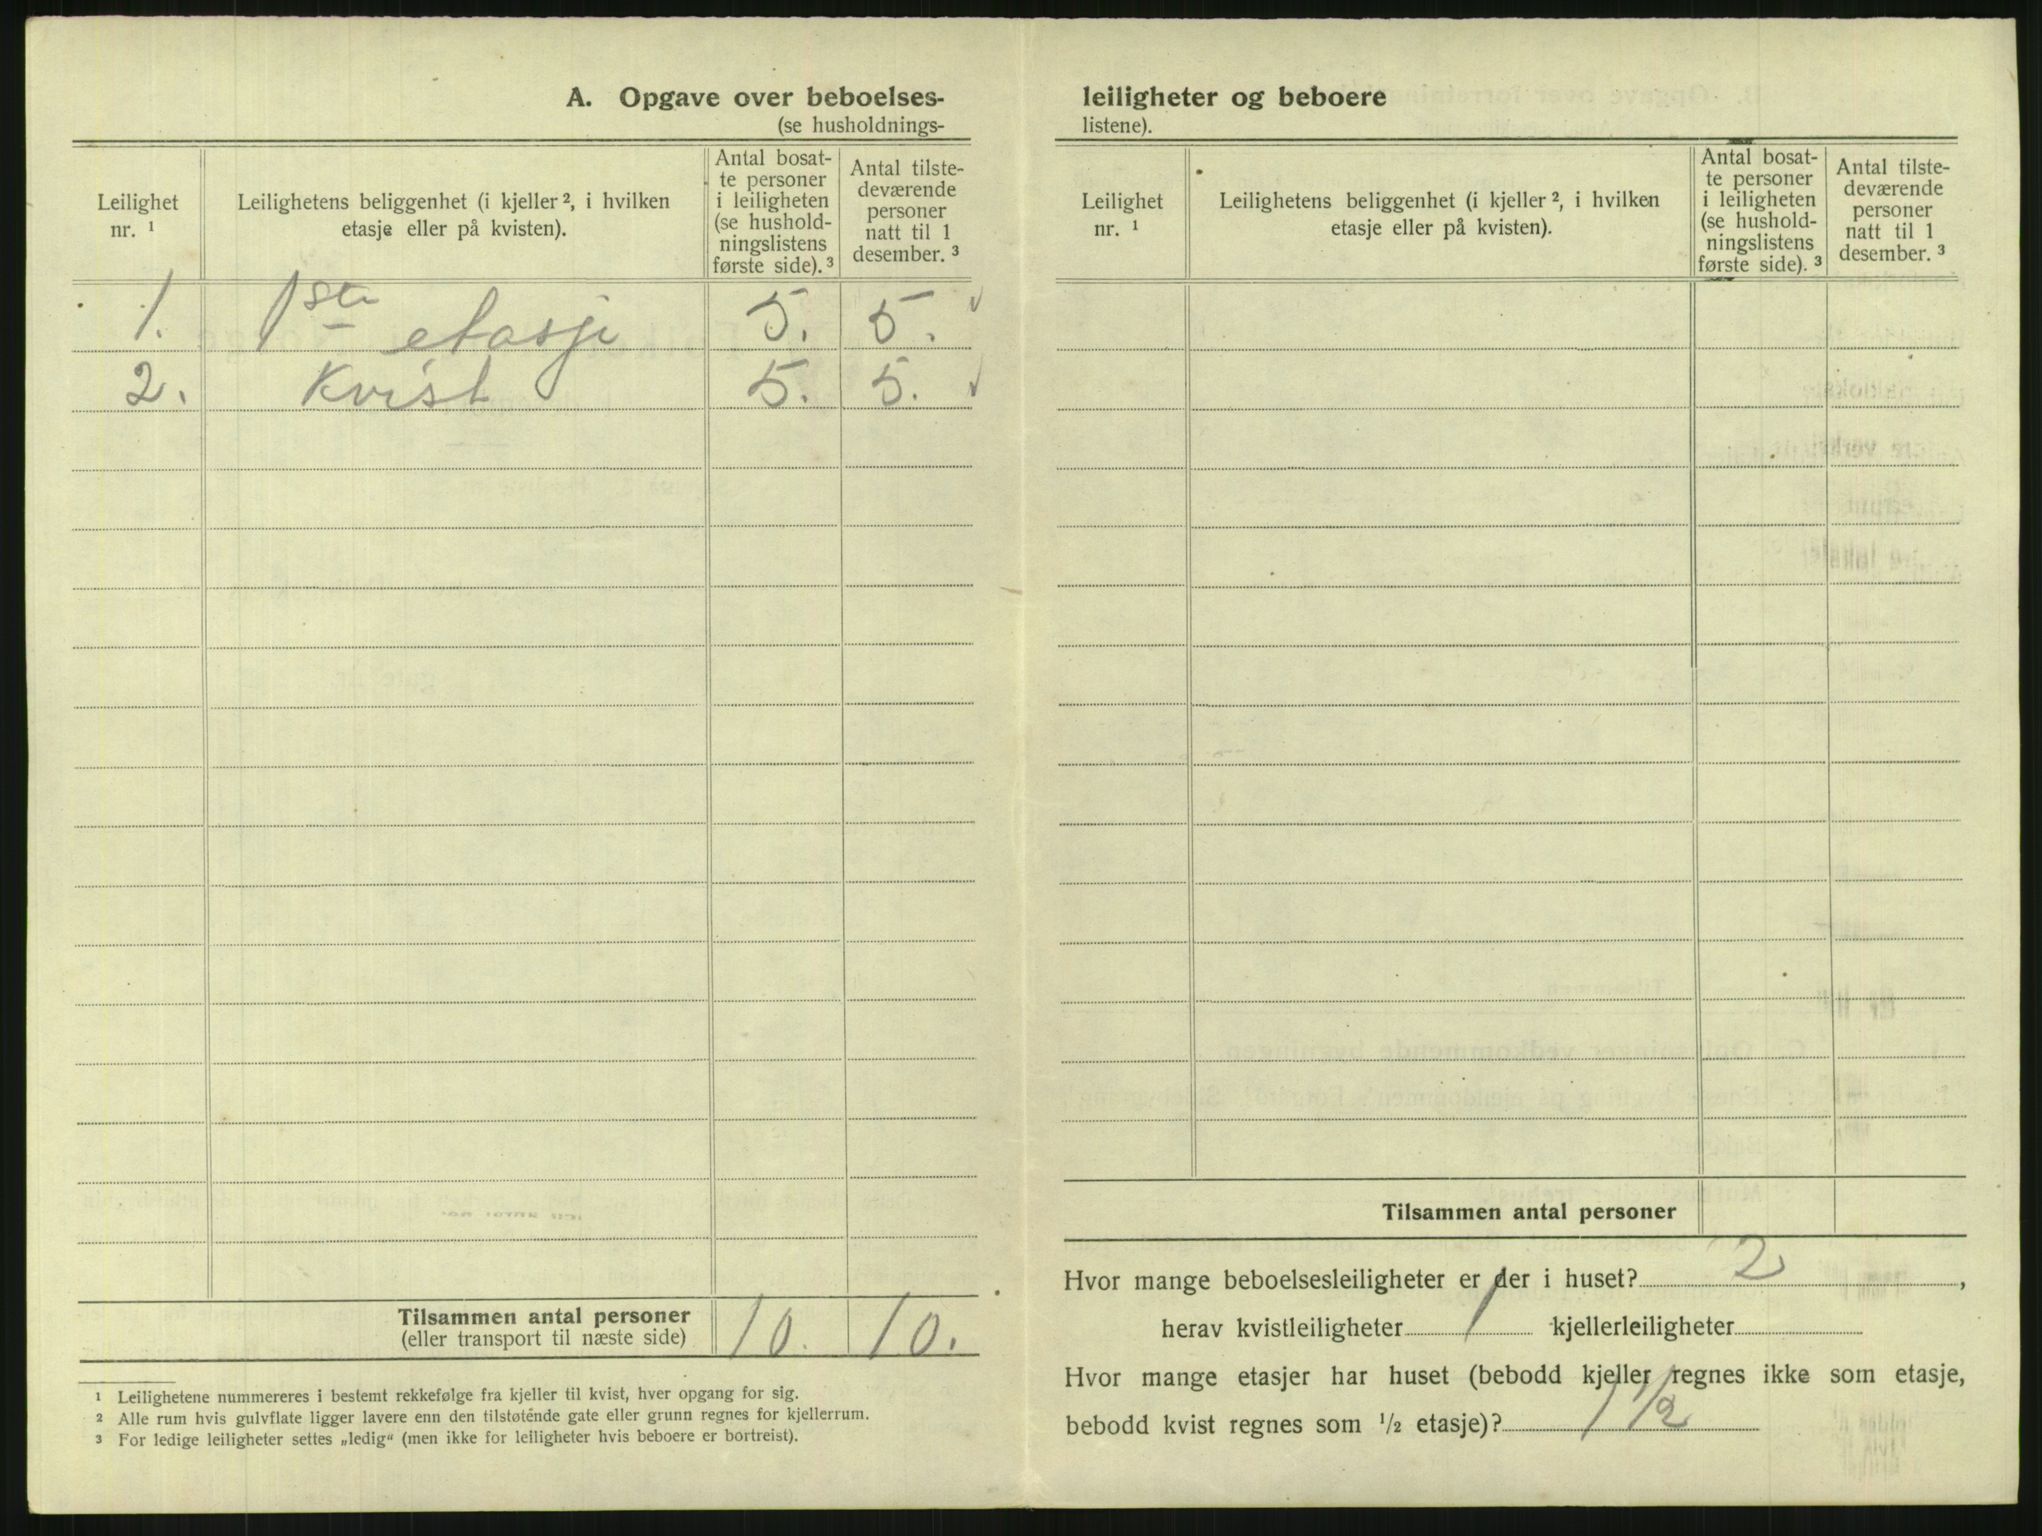 A. Opgave over beboelses-
(se husholdnings-
Leilighet
nr. ¹
Leilighetens beliggenhet (i kjeller ², i hvilken
etasje eller på kvisten).
Antal bosat-
te personer
i leiligheten
(se hushold-
ningslistens
første side). ³
Antal tilste-
deværende
personer
natt til 1
desember. ³
1. 1ste etasje 5. 5. √
2. Kvist 5. 5. √
Tilsammen antal personer
(eller transport til næste side)
10. 10.
¹ Leilighetene nummereres i bestemt rekkefølge fra kjeller til kvist, hver opgang for sig.
² Alle rum hvis gulvflate ligger lavere enn den tilstøtende gate eller grunn regnes for kjellerrum.
³ For ledige leiligheter settes „ledig“ (men ikke for leiligheter hvis beboere er bortreist).
leiligheter og beboere
listene).
Leilighet
nr. ¹
Leilighetens beliggenhet (i kjeller ², i hvilken
etasje eller på kvisten).
Antal bosat-
te personer
i leiligheten
(se hushold-
ningslistens
første side). ³
Antal tilste-
deværende
personer
natt til 1
desember. ³
Tilsammen antal personer
Hvor mange beboelsesleiligheter er der i huset? 2,
herav kvistleiligheter 1 kjellerleiligheter
Hvor mange etasjer har huset (bebodd kjeller regnes ikke som etasje,
bebodd kvist regnes som ½ etasje)? 1 1/2